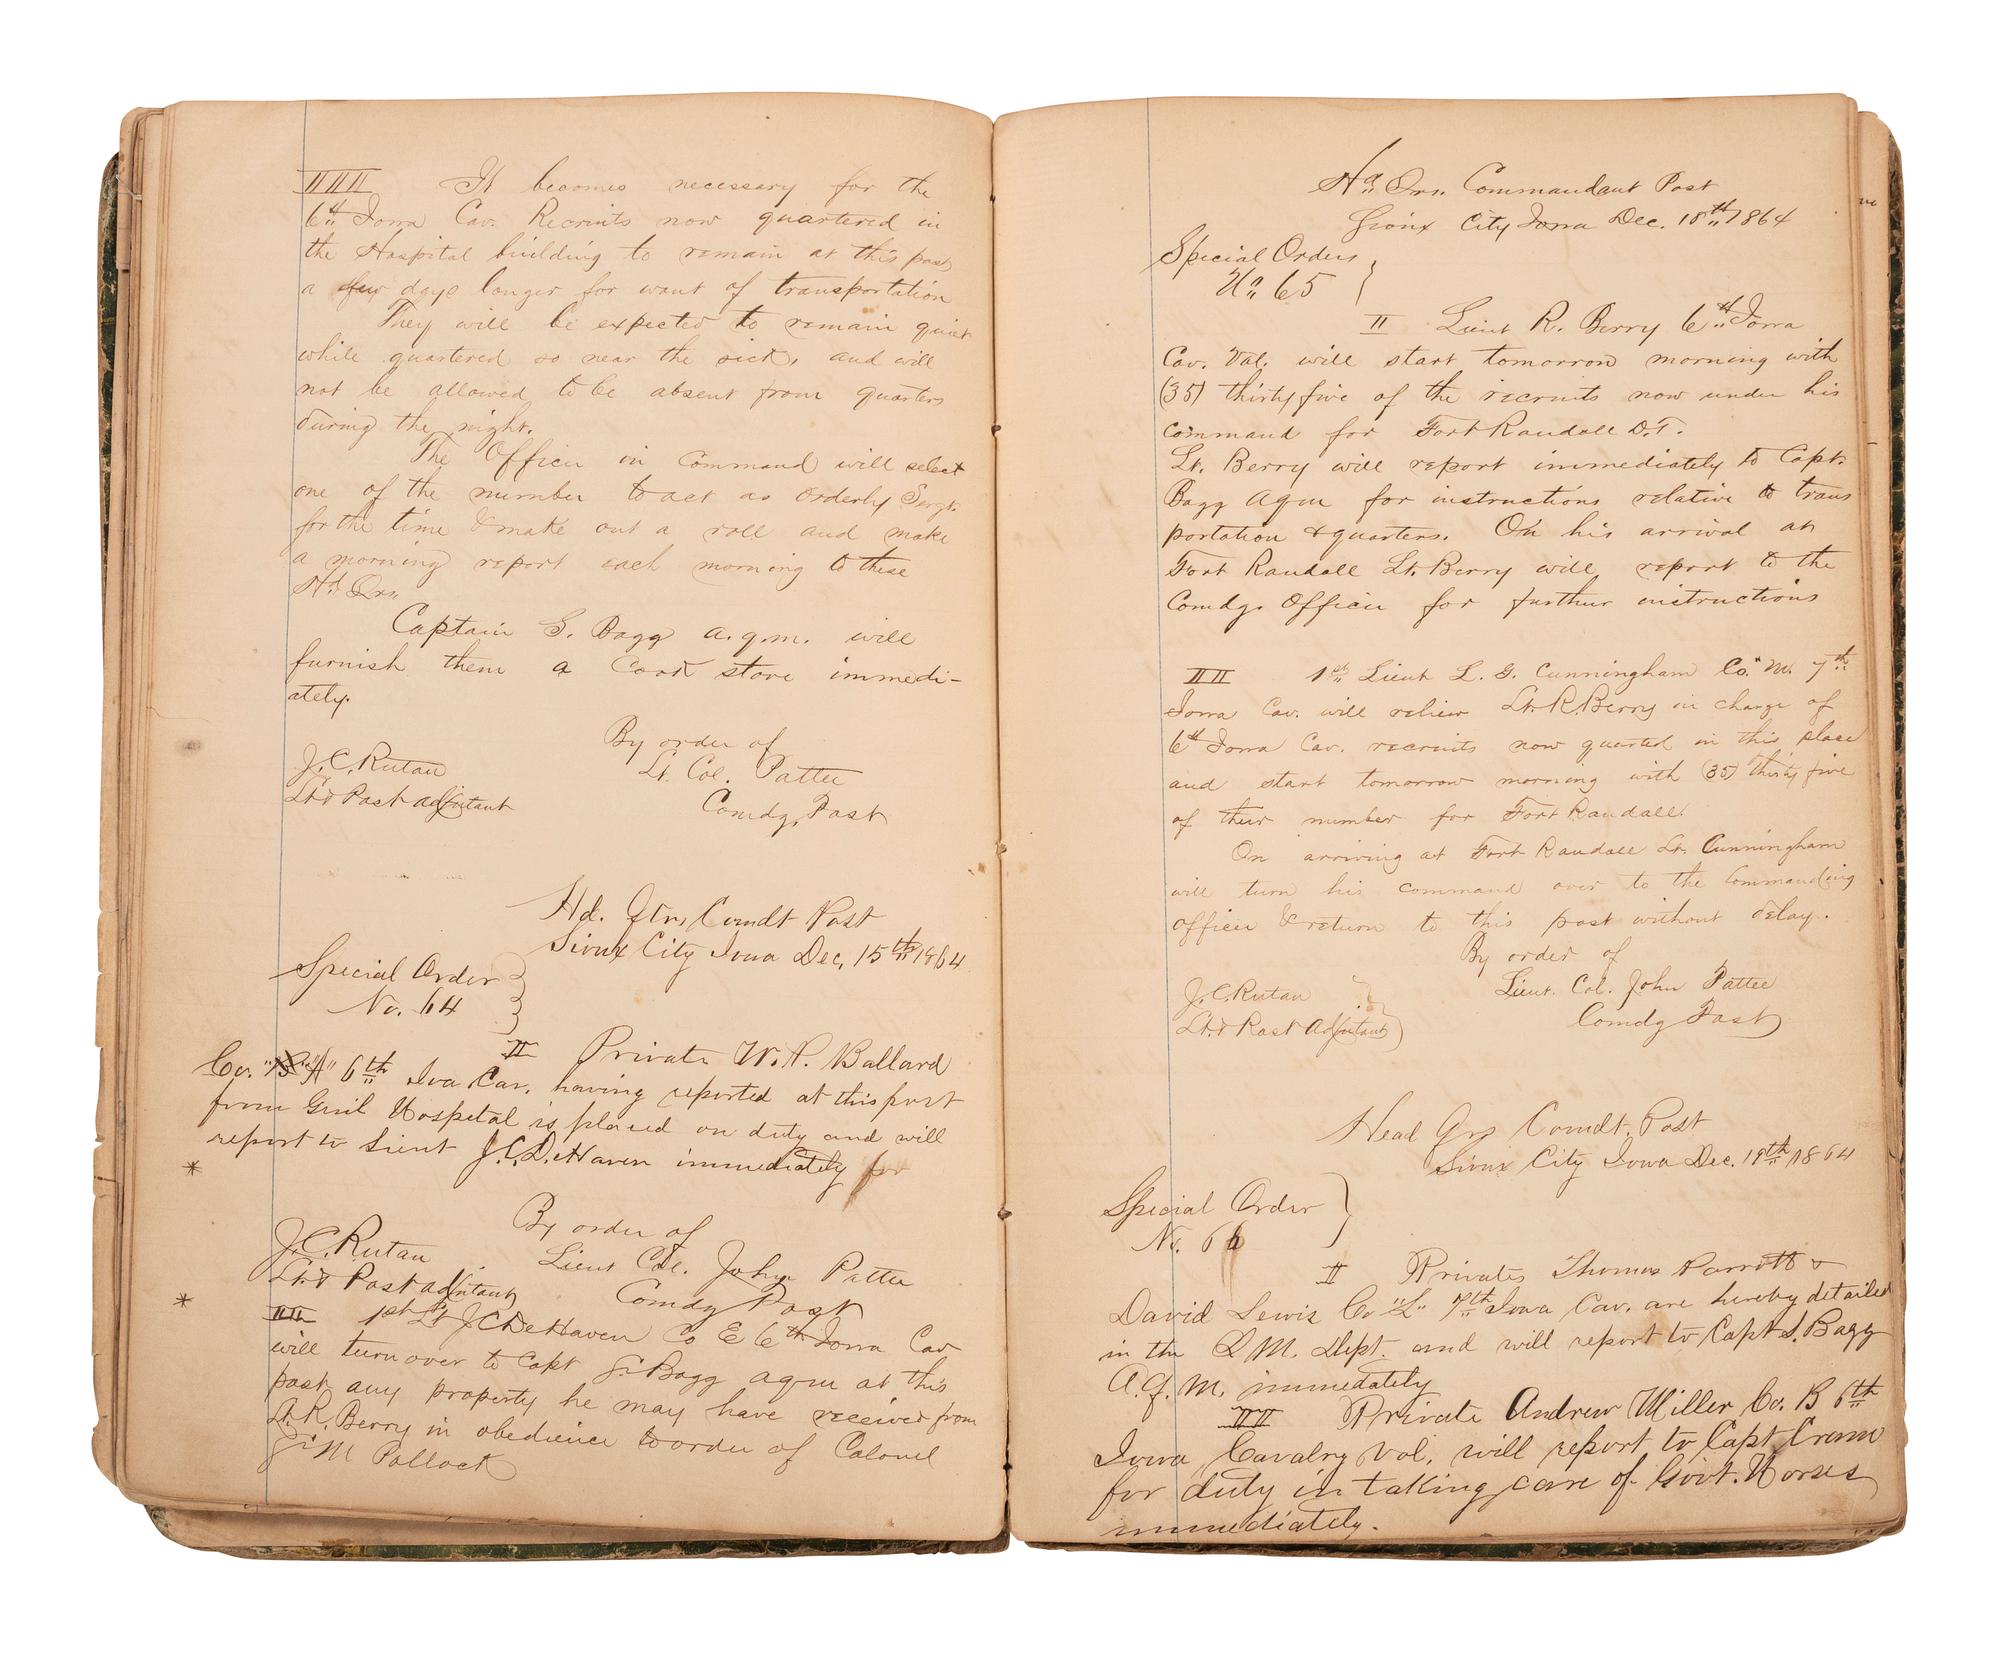 III It becomes necessary for the
6th Iowa Cav. Recruits now quartered in
the Hospital building to remain at this post
a few days longer for want of transportation
They will be expected to remain quiet
while quartered so near the sick, and will
not be allowed to be absent from quarters
during the night.
The Officer in Command will select
one of the number to act as Orderly Sergt.
for the time & make out a roll and make
a morning report each morning to these
Hd Qrs.
Captain S. Bagg a.q.m. will
furnish them a Cook stove immedi-
ately.
By order of
Lt. Col. Pattee
Comdg. Post
J.C. Rutan
Lt & Post adjutant
Hd. Qtrs, Comdt Post
Sioux City Iowa Dec, 15th 1864
Special Order
No. 64
I Private W. A. Ballard
Co. "A" 6th Ioa Cav. having reported at this post
from Genl Hospital is placed on duty and will
report to Lieut J.C. DeHaven immediately for
*
By order of
Lieut Col. John Pattee
Comdg Post
J.C. Rutan
Lt & Post adjutant
*
II 1st Lt J C DeHaven Co E 6th Iowa Cav
will turn over to Capt S. Bagg aqm at this
post any property he may have received from
Lt. R. Berry in obedience to order of Colonel
S. M Pollock
Hd Qrs. Commandant Post
Sioux City Iowa Dec. 18th 1864
Special Orders
No 65
I Lieut R. Berry 6th Iowa
Cav. Vol. will start tomorrow morning with
(35) thirty five of the recruits now under his
command for Fort Randall D.T.
Lt. Berry will report immediately to Capt.
Bagg Aqm for instructions relative to trans
portation & quarters. On his arrival at
Fort Randall Lt. Berry will report to the
Comdg. Officer for further instructions
II 1st Lieut L. G. Cunningham Co. M. 7th
Iowa Cav. will relieve Lt. R. Berry in charge of
6th Iowa Cav. recruits now quarted in this place
and start tomorrow morning with (35) thirty five
of their number for Fort Randall.
On arriving at Fort Randall Lt. Cunningham
will turn his command over to the Commanding
officer & return to this post without delay.
By order of
Lieut. Col. John Pattee
Comdg Post
J.C. Rutan
Lt. & Post Adjutant
Head Qrs Comdt. Post
Sioux City Iowa Dec. 19th 1864
Special Order
No. 66
I Privates Thomas Parrott &
David Lewis Co "L" 7th Iowa Cav. are hereby detailed
in the Q M. Dept. and will report to Capt S. Bagg
A. Q. M. immediately
II Private Andrew Miller Co. B 6th
Iowa Cavalry Vol, will report to Capt Cram
for duty in taking care of Govt. Horses
immediately.